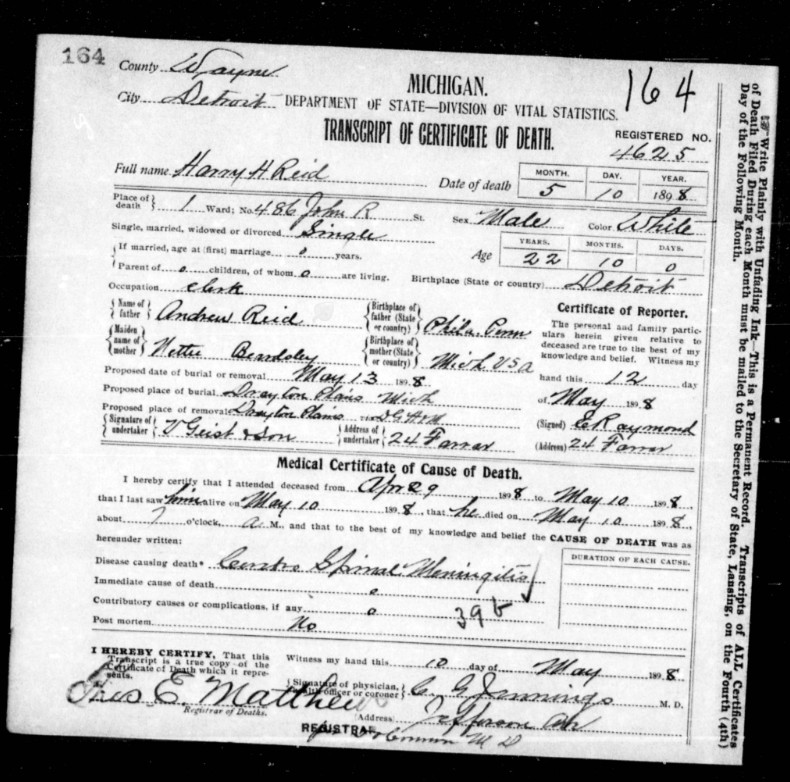 164
164
County Wayne
City Detroit
MICHIGAN.
DEPARTMENT OF STATE—DIVISION OF VITAL STATISTICS.
TRANSCRIPT OF CERTIFICATE OF DEATH.
REGISTERED NO.
4625
Full name Harry H Reid
Date of death
MONTH. DAY. YEAR.
5 10 1898
Place of death 1 Ward; No. 486 John R St. Sex Male Color White
Single, married, widowed or divorced Single
If married, age at (first) marriage 0 years.
Age
YEARS. MONTHS. DAYS.
22 10 0
Parent of 0 children, of whom 0 are living. Birthplace (State or country) Detroit
Occupation Clerk
Name of father Andrew Reid
Birthplace of father (State or country) Phila. Penn
Maiden name of mother Nettie Beardsley
Birthplace of mother (State or country) Mich USA
Proposed date of burial or removal May 13 1898
Proposed place of burial Drayton Plains Mich
Proposed place of removal Drayton Plains via DGH&M
Signature of undertaker V Geist & Son
Address of undertaker 24 Farrar
Certificate of Reporter.
The personal and family particulars herein given relative to
deceased are true to the best of my
knowledge and belief. Witness my
hand this 12 day
of May 1898
(Signed) E Raymond
(Address) 24 Farrar
Medical Certificate of Cause of Death.
I hereby certify that I attended deceased from Apr 29 1898 to May 10 1898
that I last saw him alive on May 10 1898, that he died on May 10 1898
about 7 o'clock, a M., and that to the best of my knowledge and belief the CAUSE OF DEATH was as
hereunder written:
DURATION OF EACH CAUSE.
Disease causing death* Cerebro Spinal Meningitis
Immediate cause of death 0
Contributory causes or complications, if any 0
Post mortem No
I HEREBY CERTIFY, That this
Transcript is a true copy of the
Certificate of Death which it represents.
Registrar of Deaths.
REGISTRAR
Witness my hand this 10 day of May 1898
Signature of physician, health officer or coroner C G Jennings M. D.
(Address) Jefferson Ave
Write Plainly with Unfading Ink—This is a Permanent Record. Transcripts of ALL Certificates
of Death Filed During each Month must be mailed to the Secretary of State, Lansing, on the Fourth (4th)
Day of the Following Month.